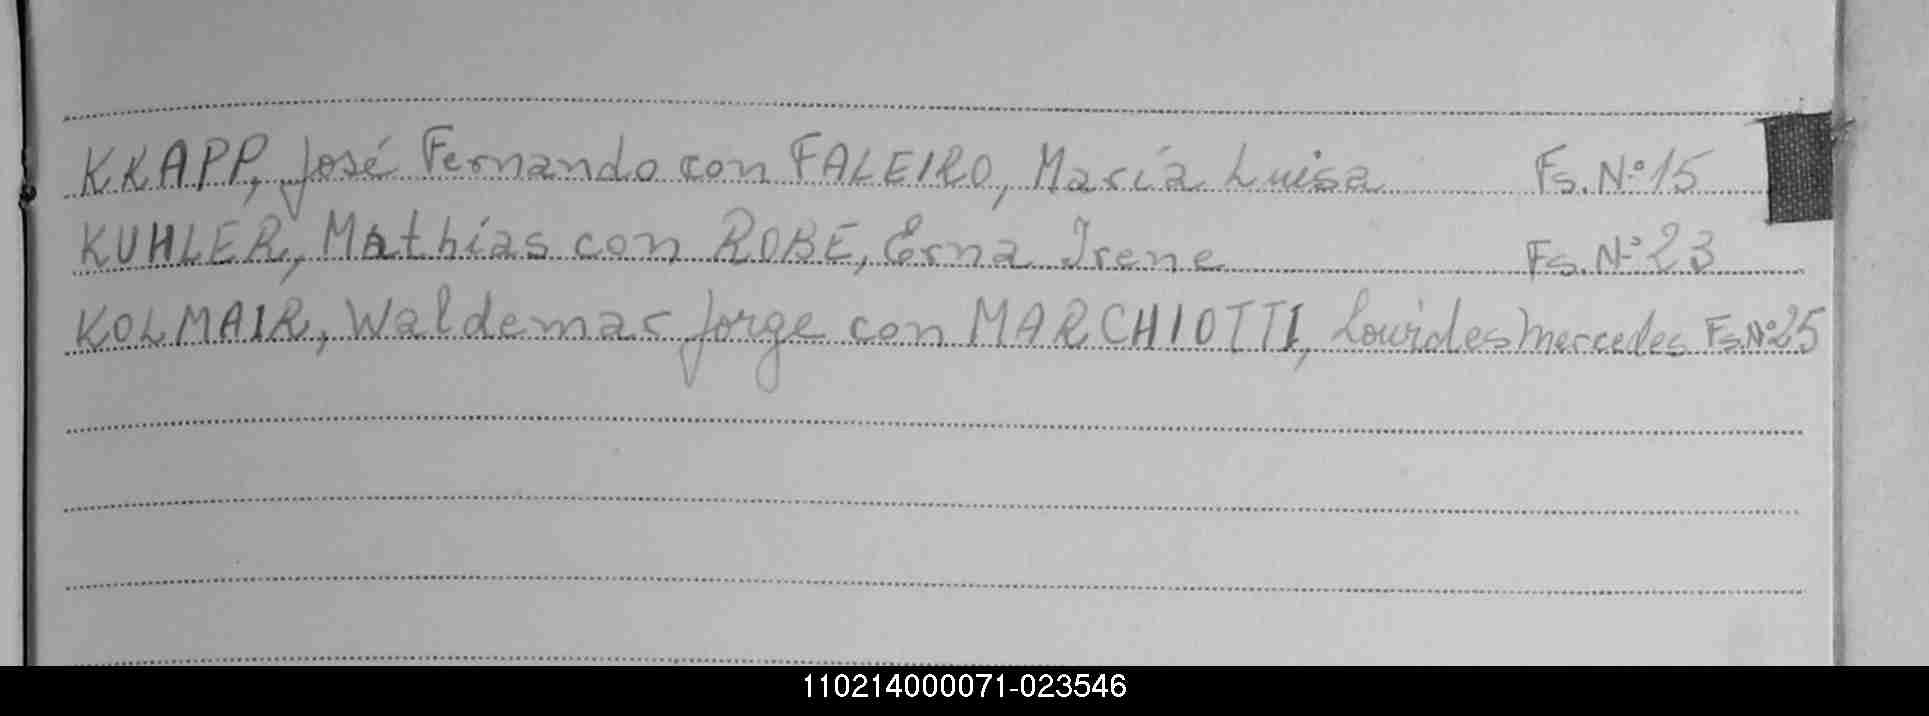 KKAPP, José Fernando con FALEIRO, María Luisa Fs. Nº 15
KUHLER, Mathías con ROBE, Erna Irene Fs. Nº 23
KOLMAIR, Waldemar Jorge con MARCHIOTTI, Lourdes Mercedes Fs. Nº 25
110214000071-023546